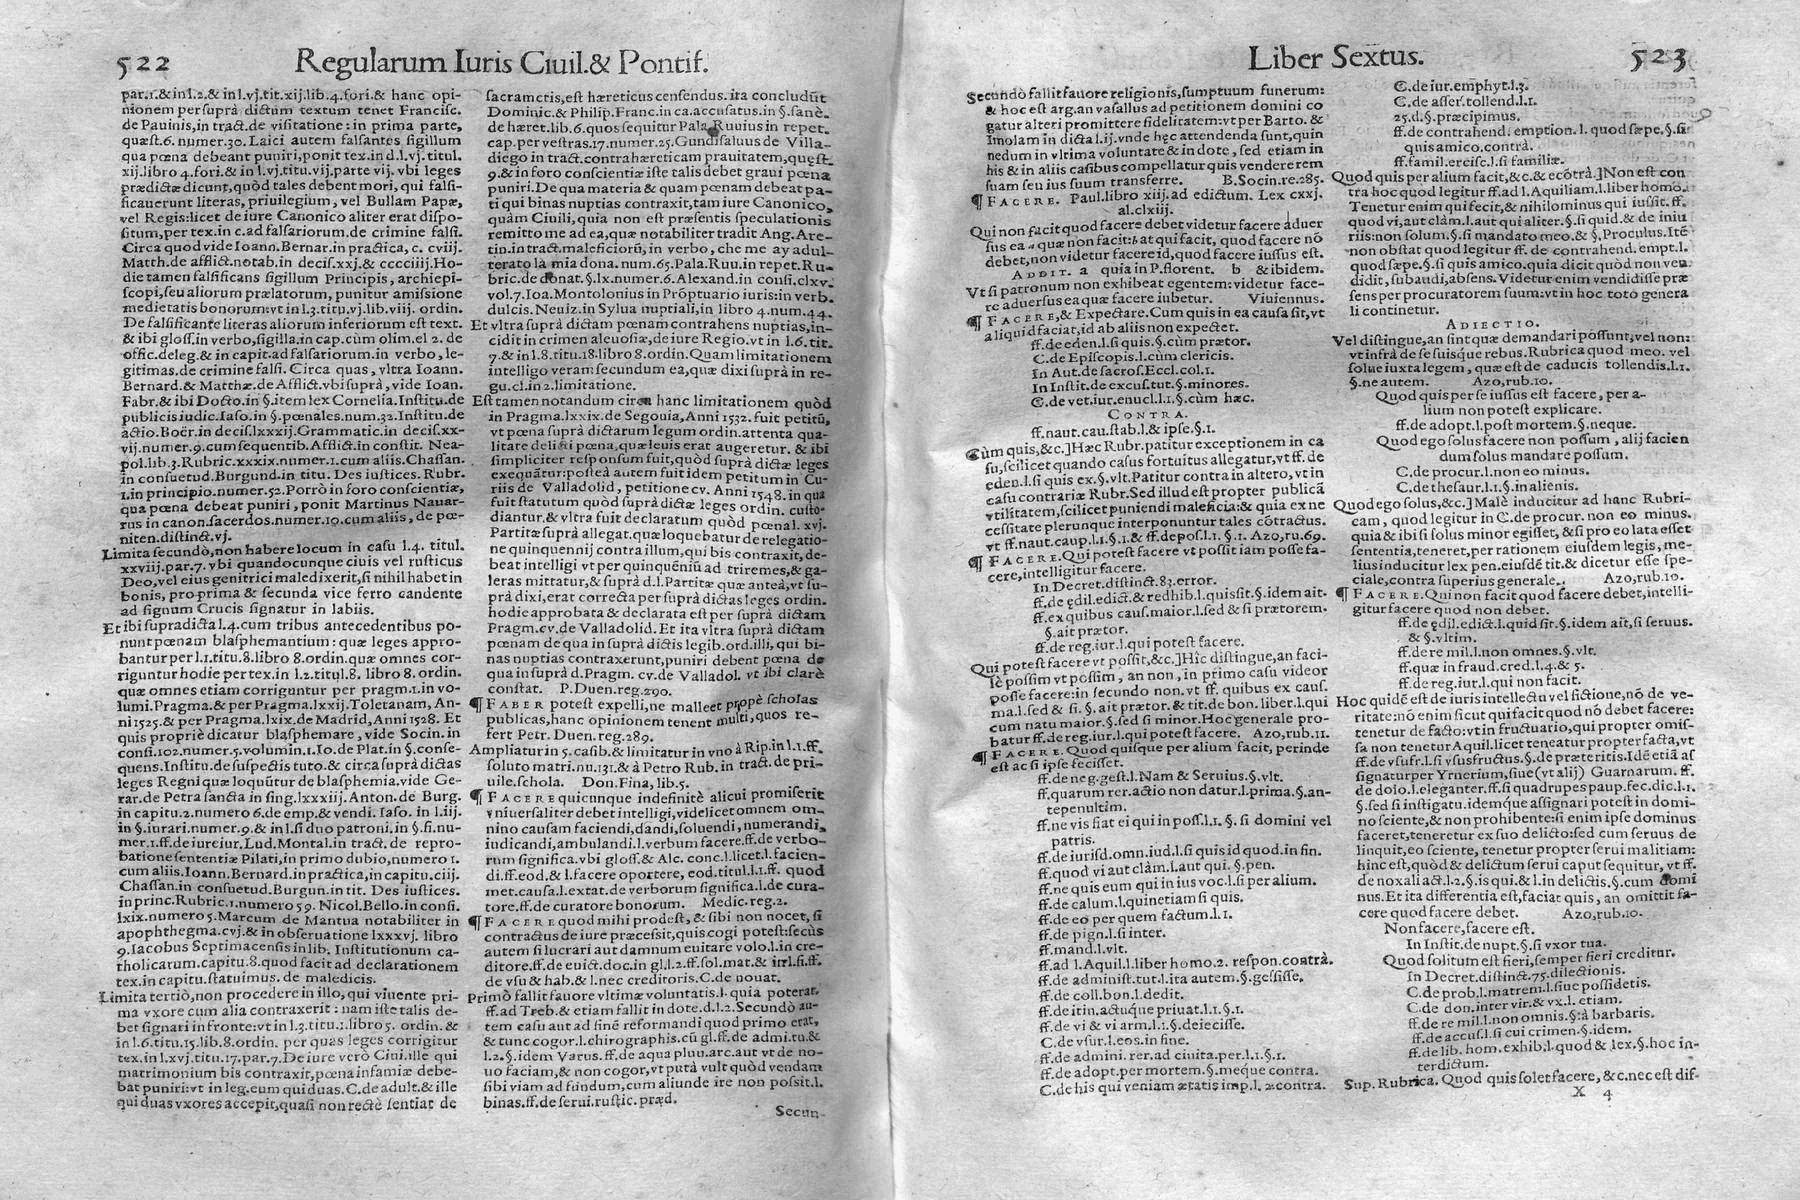 522 Regularum Iuris Ciuil.& Pontif.
par.1.& in l.2.& in l.vj.tit.xij.lib.4.fori.& hanc opi-
nionem per suprà dictum textum tenet Francisc.
de Pauinis, in tract.de visitatione: in prima parte,
quæst.6.numer.30. Laici autem falsantes sigillum
qua pœna debeant puniri, ponit tex.in d.l.vj.titul.
xij.libro 4.fori.& in l.vj.titu.vij.parte vij. vbi leges
prædictæ dicunt, quòd tales debent mori, qui falsi-
ficauerunt literas, priuilegium, vel Bullam Papæ,
vel Regis: licet de iure Canonico aliter erat dispo-
situm, per tex.in c.ad falsariorum.de crimine falsi.
Circa quod vide Ioann.Bernar.in practica, c. cviij.
Matth.de afflict.notab.in decis.xxj.& cccciiij.Ho-
die tamen falsificans sigillum Principis, archiepi-
scopi, seu aliorum prælatorum, punitur amissione
medietatis bonorum: vt in l.3.titu.vj.lib.viij. ordin.
De falsificante literas aliorum inferiorum est text.
& ibi gloss.in verbo, sigilla.in cap.cùm olim.el 2. de
offic.deleg.& in capit.ad falsariorum.in verbo, le-
gitimas.de crimine falsi. Circa quas, vltra Ioann.
Bernard.& Matthæ.de Afflict.vbi suprà, vide Ioan.
Fabr.& ibi Docto.in §.item lex Cornelia.Institu.de
publicis iudic.Iaso.in §.pœnales.num.32.Institu.de
actio.Boër.in decis.lxxxij.Grammatic.in decis.xx-
vij.numer.9.cum sequentib.Afflict.in constit. Nea-
pol.lib.3.Rubric.xxxix.numer.1.cum aliis.Chassan.
in consuetud.Burgund.in titu. Des iustices. Rubr.
1.in principio.numer.52.Porrò in foro conscientiæ,
qua pœna debeat puniri, ponit Martinus Nauar-
rus in canon.sacerdos.numer.10.cum aliis, de pœ-
niten.distinct.vj.
Limita secundò, non habere locum in casu l.4. titul.
xxviij.par.7. vbi quandocunque ciuis vel rusticus
Deo, vel eius genitrici maledixerit, si nihil habet in
bonis, pro prima & secunda vice ferro candente
ad signum Crucis signatur in labiis.
Et ibi supradicta l.4.cum tribus antecedentibus po-
nunt pœnam blasphemantium: quæ leges appro-
bantur per l.1.titu.8.libro 8.ordin.quæ omnes cor-
riguntur hodie per tex.in l.2.titul.8. libro 8.ordin.
quæ omnes etiam corriguntur per pragm.1.in vo-
lumi.Pragma.& per Pragma.lxxij.Toletanam, An-
ni 1525.& per Pragma.lxix.de Madrid, Anni 1528. Et
quis propriè dicatur blasphemare, vide Socin.in
consi.102.numer.5.volumin.1.Io.de Plat.in §.conse-
quens.Institu.de suspectis tuto.& circa suprà dictas
leges Regni quæ loquũtur de blasphemia.vide Ge-
rar.de Petra sancta in sing.lxxxiij.Anton.de Burg.
in capitu.2.numero 6.de emp.& vendi. Iaso. in l.iij.
in §.iurari.numer.9.& in l.si duo patroni, in §.si.nu-
mer.1.ff.de iureiur.Lud.Montal.in tract. de repro-
batione sententiæ Pilati, in primo dubio, numero 1.
cum aliis.Ioann.Bernard.in practica, in capitu.ciij.
Chassan.in consuetud.Burgun.in tit. Des iustices.
in princ.Rubric.1.numero 59. Nicol.Bello.in consi.
lxix.numero 5.Marcum de Mantua notabiliter in
apophthegma.cvj.& in obseruatione lxxxvj. libro
9.Iacobus Septimacensis in lib. Institutionum ca-
tholicarum.capitu.8.quod facit ad declarationem
tex.in capitu.statuimus.de maledicis.
Limita tertiò, non procedere in illo, qui viuente pri-
ma vxore cum alia contraxerit: nam iste talis de-
bet signari in fronte: vt in l.3.titu.1.libro 5. ordin.&
in l.6.titu.15.lib.8.ordin. per quas leges corrigitur
tex.in l.xvj.titu.17.par.7.De iure verò Ciui.ille qui
matrimonium bis contraxit, pœna infamiæ debe-
bat puniri: vt in leg.eum qui duas.C.de adult.& ille
qui duas vxores accepit, quasi non rectè sentiat de
sacramẽtis, est hæreticus censendus. ita concludũt
Dominic.& Philip.Franc.in ca.accusatus.in §.sanè.
de hæret.lib.6.quos sequitur Pala.Ruuius in repet.
cap.per vestras.17.numer.25.Gundisaluus de Villa-
diego in tract.contra hæreticam prauitatem, quęst.
9.& in foro conscientiæ iste talis debet graui pœna
puniri.De qua materia & quam pœnam debeat pa-
ti qui binas nuptias contraxit, tam iure Canonico,
quàm Ciuili, quia non est præsentis speculationis
remitto me ad ea, quæ notabiliter tradit Ang.Are-
tin.in tract.maleficiorũ, in verbo, che me ay adul-
terato la mia dona. num.65.Pala.Ruu.in repet.Ru-
bric.de donat.§.lx.numer.6.Alexand.in consi.clxv.
vol.7.Ioa.Montolonius in Prõptuario iuris: in verb.
dulcis.Neuiz.in Sylua nuptiali, in libro 4.num.44.
Et vltra suprà dictam pœnam contrahens nuptias, in-
cidit in crimen aleuosiæ, de iure Regio.vt in l.6.tit.
7.& in l.8.titu.18.libro 8.ordin.Quam limitationem
intelligo veram: secundum ea, quæ dixi suprà in re-
gu.cl.in 2.limitatione.
Est tamen notandum circa hanc limitationem quòd
in Pragma.lxxix.de Segouia, Anni 1532. fuit petitũ,
vt pœna suprà dictarum legum ordin.attenta qua-
litate delicti pœna, quæ leuis erat augeretur. & ibi
simpliciter responsum fuit, quòd suprà dictæ leges
exequãtur: posteà autem fuit idem petitum in Cu-
riis de Valladolid, petitione cv. Anni 1548.in qua
fuit statutum quòd suprà dictæ leges ordin. custo-
diantur.& vltra fuit declaratum quòd pœnal. xvj.
Partitæ suprà allegat.quæ loquebatur de relegatio-
ne quinquennij contra illum, qui bis contraxit, de-
beat intelligi vt per quinquenniũ ad triremes, & ga-
leras mittatur, & suprà d.l.Partitæ quæ anteà, vt su-
prà dixi, erat correcta per suprà dictas leges ordin.
hodie approbata & declarata est per suprà dictam
Pragm.cv.de Valladolid. Et ita vltra suprà dictam
pœnam de qua in suprà dictis legib.ord.illi, qui bi-
nas nuptias contraxerunt, puniri debent pœna de
qua in suprà d.Pragm. cv.de Valladol. vt ibi clarè
constat. P.Duen.reg.290.
¶ FABER potest expelli, ne malleet propè scholas
publicas, hanc opinionem tenent multi, quos re-
fert Petr. Duen.reg.289.
Ampliatur in 5. casib.& limitatur in vno à Rip.in l.1.ff.
soluto matri.nu.131.& à Petro Rub. in tract. de pri-
uile.schola. Don.Fina, lib.5.
¶ FACERE quicunque indefinitè alicui promiserit
vniuersaliter debet intelligi, videlicet omnem om-
nino causam faciendi, dandi, soluendi, numerandi,
iudicandi, ambulandi.l.verbum facere.ff.de verbo-
rum significa.vbi gloss.& Alc. conc.l.licet.l. facien-
di.ff.eod.& l.facere oportere, eod.titul.l.1.ff. quod
met.causa.l.extat.de verborum significa.l.de cura-
tore.ff.de curatore bonorum. Medic.reg.2.
¶ FACERE quod mihi prodest, & sibi non nocet, si
contractus de iure præcessit, quis cogi potest: secùs
autem si lucrari aut damnum euitare volo.l.in cre-
ditore.ff.de euict.doc.in gl.l.2.ff.sol.mat.& in l.si.ff.
de vsu & hab.& l.nec creditoris.C.de nouat.
Primò fallit fauore vltimæ voluntatis.l. quia poterat.
ff.ad Treb.& etiam fallit in dote.d.l.2.Secundò au-
tem casu aut ad finẽ reformandi quod primo erat,
& tunc cogor.l.chirographis.cũ gl.ff.de admi.tu.&
l.2.§.idem Varus.ff.de aqua pluu.arc.aut vt de no-
uo faciam, & non cogor, vt putà vult quòd vendam
sibi viam ad fundum, cum aliunde ire non possit.l.
binas.ff.de serui.rustic. præd.
Secun-
Liber Sextus. 523
Secundò fallit fauore religionis, sumptuum funerum:
& hoc est arg.an vasallus ad petitionem domini co
gatur alteri promittere fidelitatem: vt per Barto. &
Imolam in dicta l.ij.vnde hęc attendenda sunt, quin
nedum in vltima voluntate & in dote, sed etiam in
his & in aliis casibus compellatur quis vendere rem
suam seu ius suum transferre. B.Socin.re.285.
¶ FACERE. Paul.libro xiij.ad edictum. Lex cxxj.
al.clxiij.
Qui non facit quod facere debet videtur facere aduer
sus ea a quæ non facit: b at qui facit, quod facere nõ
debet, non videtur facere id, quod facere iussus est.
ADDIT. a quia in P.florent. b & ibidem.
Vt si patronum non exhibeat egentem: videtur face-
re aduersus ea quæ facere iubetur. Viuiennus.
¶ FACERE, & Expectare.Cum quis in ea causa sit, vt
aliquid faciat, id ab aliis non expectet.
ff.de eden.l.si quis.§.cùm prætor.
C.de Episcopis.l.cùm clericis.
In Aut.de sacros.Eccl.col.1.
In Instit.de excus.tut.§.minores.
C.de vet.iur.enucl.l.1.§.cùm hæc.
CONTRA.
ff.naut.cau.stab.l.& ipse.§.1.
Cùm quis, &c.]Hæc Rubr.patitur exceptionem in ca
su, scilicet quando casus fortuitus allegatur, vt ff. de
eden.l.si quis ex.§.vlt.Patitur contra in altero, vt in
casu contrariæ Rubr.Sed illud est propter publicã
vtilitatem, scilicet puniendi maleficia: & quia ex ne
cessitate plerunque interponuntur tales cõtractus.
vt ff.naut.caup.l.1.§.1.& ff.depos.l.1. §.1. Azo, ru.69.
¶ FACERE. Qui potest facere vt possit iam posse fa-
cere, intelligitur facere.
In Decret.distinct.83.error.
ff.de ędil.edict.& redhib.l.quissit.§.idem ait.
ff.ex quibus caus.maior.l.sed & si prætorem.
§.ait prætor.
ff.de reg.iur.l.qui potest facere.
Qui potest facere vt possit, &c.]Hîc distingue, an faci-
lè possim vt possim, an non, in primo casu videor
posse facere: in secundo non.vt ff. quibus ex caus.
ma.l.sed & si.§.ait prætor.& tit.de bon. liber.l.qui
cum natu maior.§.sed si minor.Hoc generale pro-
batur ff.de reg.iur.l.qui potest facere. Azo, rub.11.
¶ FACERE. Quod quisque per alium facit, perinde
est ac si ipse fecisset.
ff.de neg.gest.l.Nam & Seruius.§.vlt.
ff.quarum rer.actio non datur.l.prima.§.an-
tepenultim.
ff.ne vis fiat ei qui in poss.l.1.§. si domini vel
patris.
ff.de iurisd.omn.iud.l.si quis id quod.in fin.
ff.quod vi aut clàm.l.aut qui. §.pen.
ff.ne quis eum qui in ius voc.l.si per alium.
ff.de calum.l.quinetiam si quis.
ff.de eo per quem factum.l.1.
ff.de pign.l.si inter.
ff.mand.l.vlt.
ff.ad l.Aquil.l.liber homo.2. respon.contrà.
ff.de administ.tut.l.ita autem.§.gessisse.
ff.de coll.bon.l.dedit.
ff.de itin.actuque priuat.l.1.§.1.
ff.de vi & vi arm.l.1.§.deiecisse.
C.de vsur.l.eos.in fine.
ff.de admini. rer.ad ciuita.per.l.1.§.1.
ff.de adopt.per mortem.§.meque contra.
C.de his qui veniam ætatis imp.l. 2.contra.
C.de iur.emphyt.l.3.
C.de asser.tollend.l.1.
25.d.§.præcipimus.
ff.de contrahend. emption.l. quod sæpe.§.si
quis amico.contrà.
ff.famil.ercisc.l.si familiæ.
Quod quis per alium facit, &c.& ecõtrà.]Non est con
tra hoc quod legitur ff.ad l.Aquiliam.l.liber homo.
Tenetur enim qui fecit, & nihilominus qui iussit. ff.
quod vi, aut clàm.l.aut qui aliter.§.si quid.& de iniu
riis: non solum.§.si mandato meo.& §.Proculus.Itẽ
non obstat quod legitur ff. de contrahend. empt.l.
quod sæpe.§.si quis amico.quia dicit quòd non ven
didit, subaudi, absens.Videtur enim vendidisse præ
sens per procuratorem suum: vt in hoc toto genera
li continetur.
ADIECTIO.
Vel distingue, an sint quæ demandari possunt, vel non:
vt infrà de se suisque rebus.Rubrica quod meo. vel
solue iuxta legem, quæ est de caducis tollendis.l.1.
§.ne autem. Azo, rub.10.
Quod quis per se iussus est facere, per a-
lium non potest explicare.
ff.de adopt.l.post mortem.§.neque.
Quod ego solus facere non possum, alij facien
dum solus mandare possum.
C.de procur.l.non eo minus.
C.de thesaur.l.1.§.in alienis.
Quod ego solus, &c.]Malè inducitur ad hanc Rubri-
cam, quod legitur in C.de procur. non eo minus.
quia & ibi si solus minor egisset, & si pro eo lata esset
sententia, teneret, per rationem eiusdem legis, me-
lius inducitur lex pen.eiusdẽ tit.& dicetur esse spe-
ciale, contra superius generale. Azo, rub.10.
¶ FACERE. Qui non facit quod facere debet, intelli-
gitur facere quod non debet.
ff.de ędil.edict.l.quid sit.§.idem ait, si seruus.
& §.vltim.
ff.de re mil.l.non omnes.§.vlt.
ff.quæ in fraud.cred.l.4.& 5.
ff.de reg.iur.l.qui non facit.
Hoc quidẽ est de iuris intellectu vel fictione, nõ de ve-
ritate: nõ enim sicut qui facit quod nõ debet facere:
tenetur de facto: vt in fructuario, qui propter omis-
sa non tenetur Aquil.licet teneatur propter facta, vt
ff.de vsufr.l.si vsusfructus.§.de præteritis.Idẽ etiã as
signatur per Yrnerium, siue(vt alij) Guarnarum. ff.
de dolo.l.eleganter.ff.si quadrupes paup.fec.dic.l.1.
§.sed si instigatu.idemque assignari potest in domi-
no sciente, & non prohibente: si enim ipse dominus
faceret, teneretur ex suo delicto: sed cum seruus de
linquit, eo sciente, tenetur propter serui malitiam:
hinc est, quòd & delictum serui caput sequitur, vt ff.
de noxali act.l.2.§.is qui.& l.in delictis.§.cum domi
nus.Et ita differentia est, faciat quis, an omittit fa-
cere quod facere debet. Azo, rub.10.
Non facere, facere est.
In Instit.de nupt.§.si vxor tua.
Quod solitum est fieri, semper fieri creditur.
In Decret.distinct.75.dilectionis.
C.de prob.l.matrem.l.siue possidetis.
C.de don.inter vir.& vx.l. etiam.
ff.de re mil.l.non omnis.§.à barbaris.
ff.de accus.l.si cui crimen.§.idem.
ff.de lib. hom.exhib.l.quod & lex.§.hoc in-
terdictum.
Sup.Rubrica. Quod quis solet facere, &c.nec est dif-
X 4